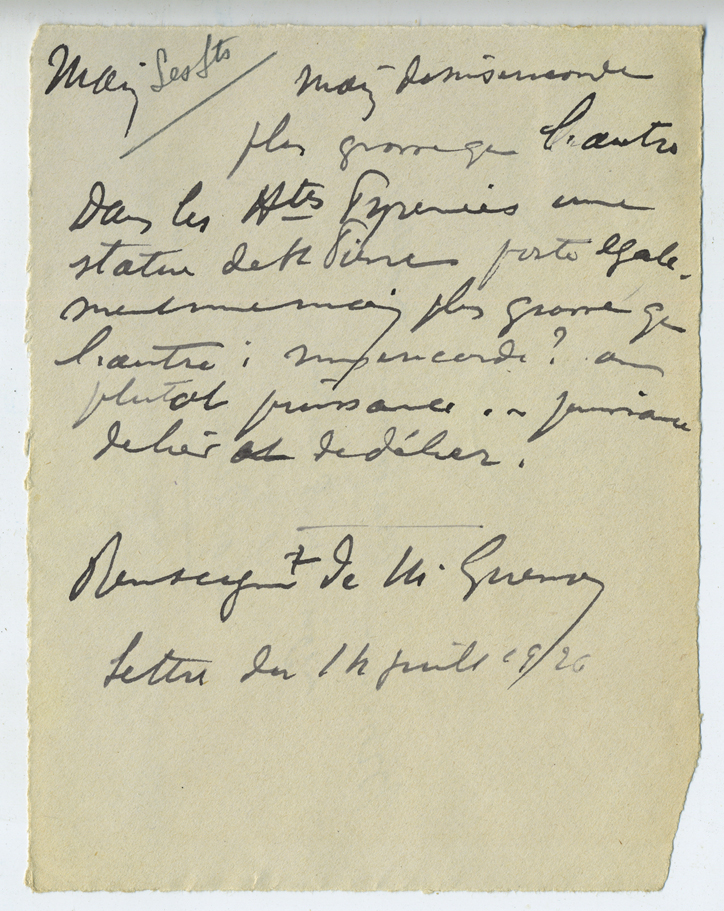 Main les Sts
Main de miséricorde
plus grosse que l'autre
Dans les Htes Pyrénées une
statue de St Pierre porte égale-
ment une main plus grosse que
l'autre : miséricorde ? ou
plutôt puissance .. puissance
de lier et de délier.
Renseignt de M. 
Lettre du 14 juill 1926